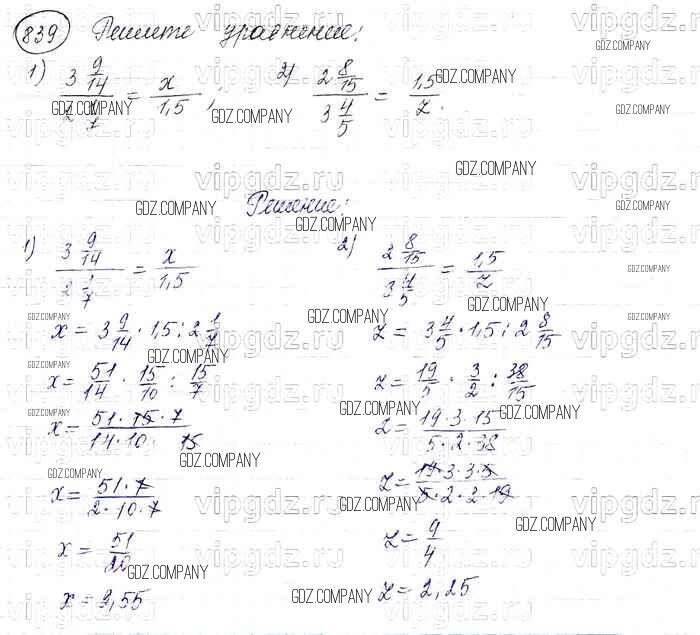 839 Решите уравнение:
1) 3 9/14 / 2 1/7 = x / 1,5 ; 2) 2 8/15 / 3 4/5 = 1,5 / z.
Решение:
1) 3 9/14 / 2 1/7 = x / 1,5
x = 3 9/14 · 1,5 : 2 1/7
x = 51/14 · 15/10 : 15/7
x = 51·15·7 / 14·10·15
x = 51·7 / 2·10·7
x = 51/20
x = 2,55
2) 2 8/15 / 3 4/5 = 1,5 / z
z = 3 4/5 · 1,5 : 2 8/15
z = 19/5 · 3/2 : 38/15
z = 19·3·15 / 5·2·38
z = 19·3·3·5 / 5·2·2·19
z = 9/4
z = 2,25
vipgdz.ru
GDZ.COMPANY